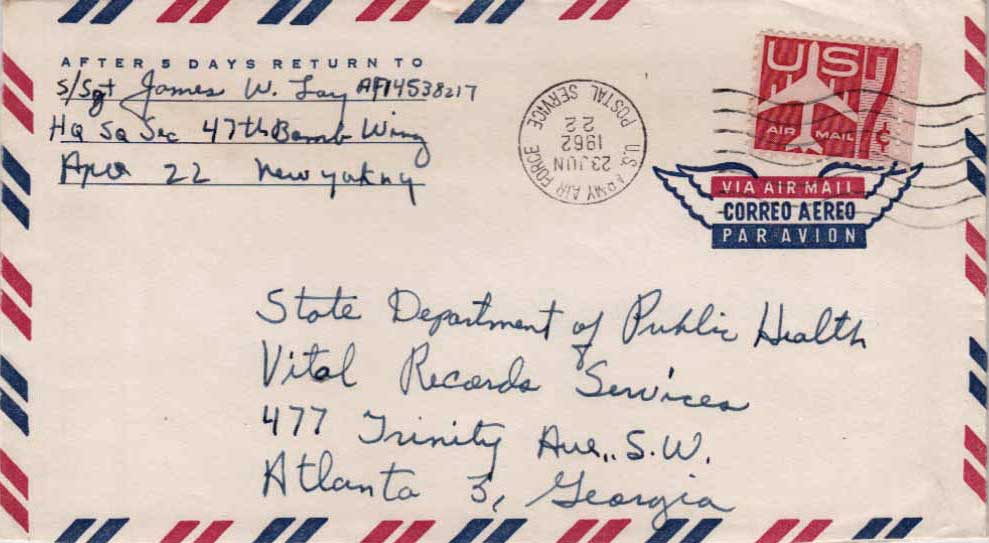 AFTER 5 DAYS RETURN TO
S/Sgt James W. Lay AF14538217
Hq Sq Sec 47th Bomb Wing
APO 22 New York NY
U.S. ARMY AIR FORCE
POSTAL SERVICE
23 JUN
1962
22
US
AIR MAIL
7¢
VIA AIR MAIL
CORREO AEREO
PAR AVION
State Department of Public Health
Vital Records Services
477 Trinity Ave., S.W.
Atlanta 3, Georgia